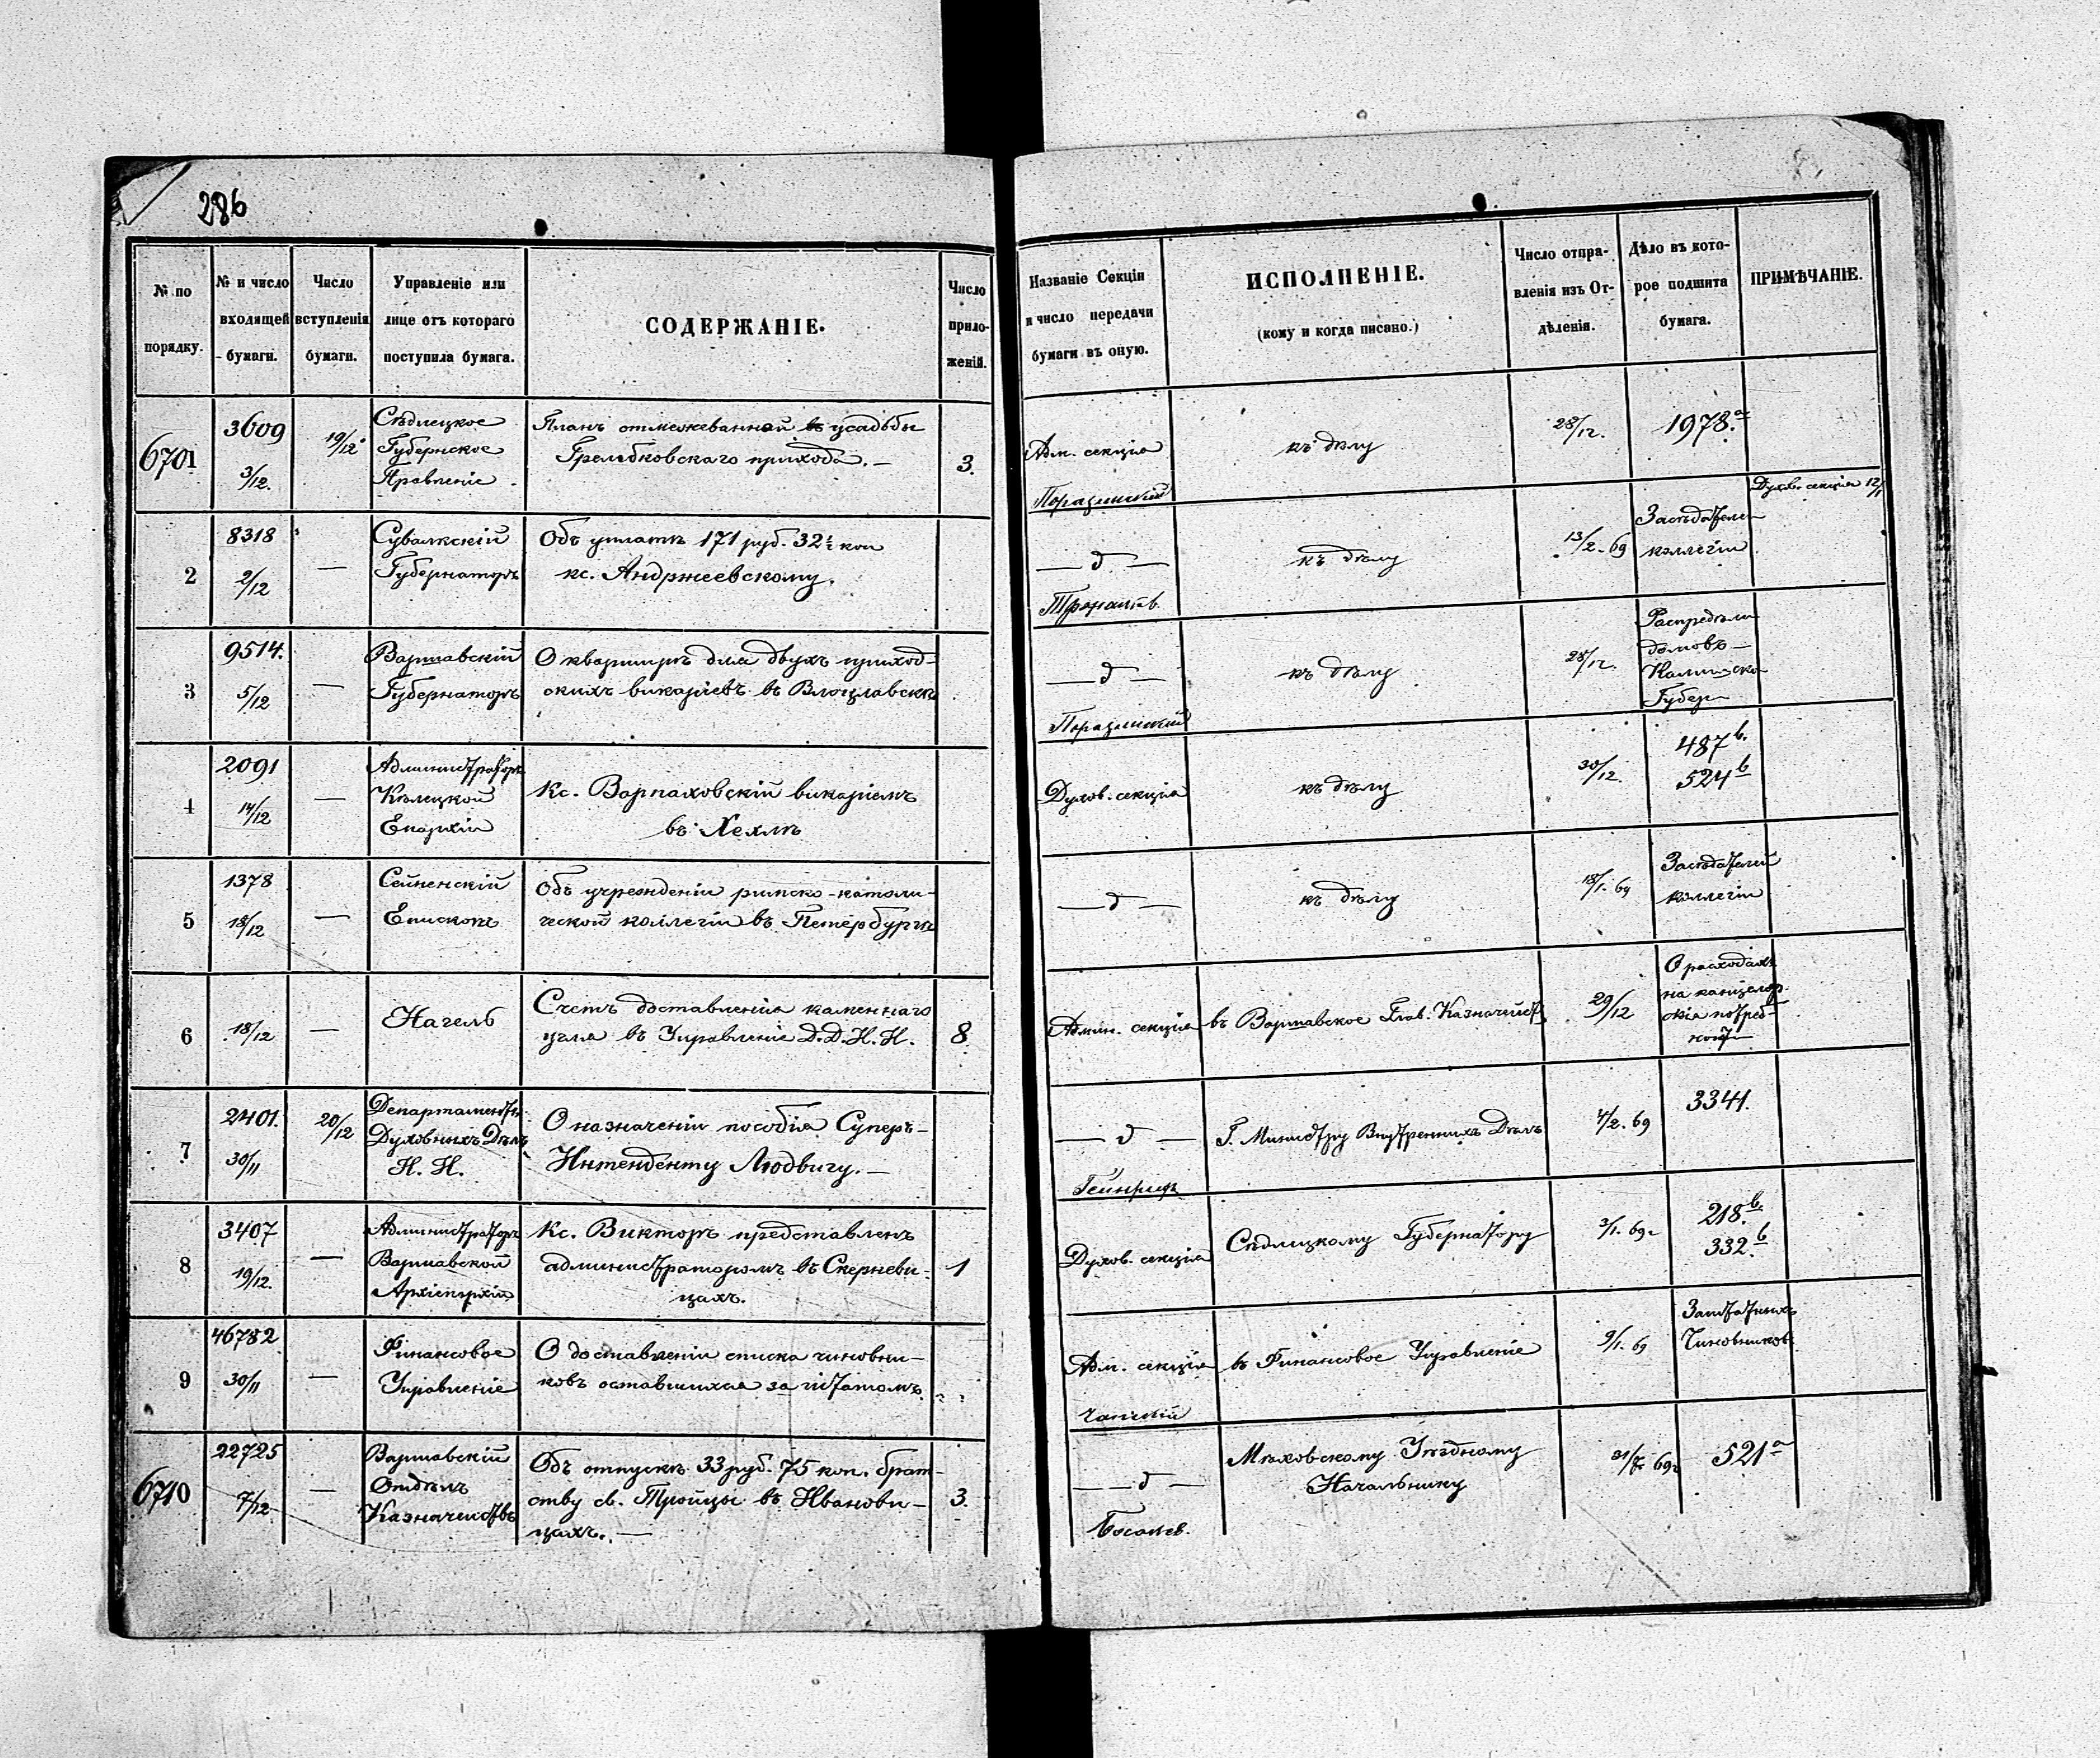 286
№ по порядку.
№ и число входящей бумаги.
Число вступленія бумаги.
Управленіе или лице отъ котораго поступила бумага.
СОДЕРЖАНІЕ.
Число приложеній.
Названіе Секціи и число передачи бумаги въ оную.
ИСПОЛНЕНІЕ.
(кому и когда писано.)
Число отправленія изъ Отдѣленія.
Дѣло въ которое подшита бумага.
ПРИМѢЧАНІЕ.
6701
3609
3/12.
19/12
Сѣдлецкое
Губернское
Правленіе
Планъ отмежеванной усадьбы
Гремబковскаго прихода. —
3.
Адм. секція
къ дѣлу
28/12.
1978.а
2
8318
2/12
—
Сувалкскій
Губернаторъ
Объ уплатѣ 171 руб. 32½ коп
кс. Анджеевскому.
— д —
къ дѣлу
13/2 - 69
Засѣдателе
коллегіи
Духов. секція 12/1
3
9514.
5/12
—
Варшавскій
Губернаторъ
О квартирѣ для двухъ приход-
скихъ викаріевъ въ Влоцлавскѣ
— д —
къ дѣлу
28/12.
Распредѣли
домовъ —
Калишско
Губер
4
2091
14/12
—
Администраторъ
Кѣлецкой
Епархіи
Кс. Варпаховскій викаріемъ
въ Хехлѣ
Духов. секція
къ дѣлу
30/12.
487 b.
524 b
5
1378
18/12
—
Сейненскій
Епископъ
Объ учрежденіи римско-католи-
ческой коллегіи въ Петербургѣ
— д —
къ дѣлу
18/1. 69
Засѣдателей
коллегіи
6
18/12
—
Нагель
Счетъ доставленія каменнаго
угля въ Управленіе Д.Д.И.И.
8
Админ. секція
въ Варшавское Глав. Казначейст
29/12
О расходахъ
на канцеляр.
скія потреб-
ност
7
2401.
30/11
20/12
Департаментъ
Духовныхъ Дѣлъ
И. И.
О назначеніи пособія Суперъ-
Интенденту Людвигу. —
— д —
Гейнрихъ
Г. Министру Внутреннихъ Дѣлъ
4/2. 69
3341.
8
3407
19/12.
—
Администраторъ
Варшавской
Архіепархіи
Кс. Викторъ представленъ
администраторомъ въ Скерневи-
цахъ.
1
Духов. секція
Сѣдлецкому Губернатору
3/1. 69г
218. b.
332. b
9
46782
30/11
—
Финансовое
Управленіе
О доставленіи списка чиновни-
ковъ оставшихся за штатомъ.
Адм. секція
въ Финансовое Управленіе
9/1. 69
Заштатныхъ
Чиновников
6710
22725
7/12
—
Варшавскій
Отдѣлъ
Казначействъ
Объ отпускѣ 33 руб. 75 коп. брат-
ству св. Тройцы въ Иванови-
цахъ. —
3.
— д —
Мѣховскому Уѣздному
Начальнику
31/7 69г
521 а